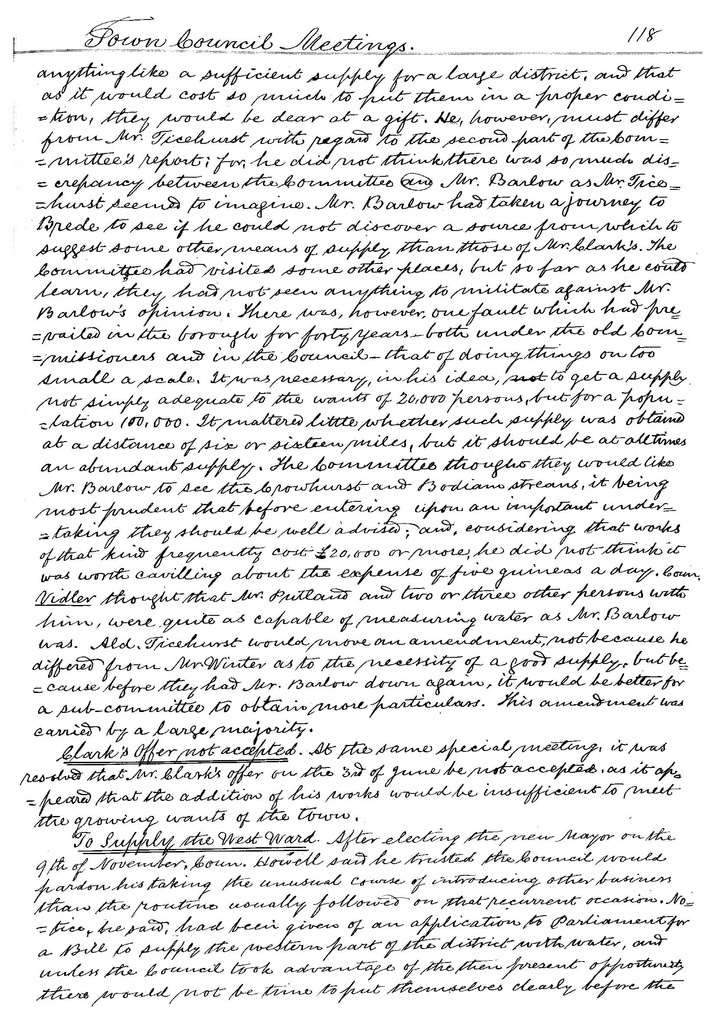 Town Council Meetings. 118
anything like a sufficient supply for a large district, and that
as it would cost so much to put them in a proper condi=
=tion, they would be dear at a gift. He, however, must differ
from Mr. Ticehurst with regard to the second part of the Com=
=mittee's report; for, he did not think there was so much dis=
=crepancy between the Committee an Mr. Barlow as Mr. Tice=
=hurst seemed to imagine. Mr. Barlow had taken a journey to
Brede to see if he could not discover a source from which to
suggest some other means of supply than those of Mr. Clark's. The
Committee had visited some other places, but so far as he could
learn, they had not seen anything to militate against Mr.
Barlow's opinion. There was, however, one fault which had pre=
=vailed in the borough for forty years – both under the old Com=
=missioners and in the Council – that of doing things on too
small a scale. It was necessary, in his idea, not to get a supply
not simply adequate to the wants of 20,000 persons, but for a popu=
=lation 100,000. It mattered little whether such supply was obtained
at a distance of six or sixteen miles, but it should be at all times
an abundant supply. The Committee thought they would like
Mr. Barlow to see the Crowhurst and Bodiam streams, it being
most prudent that before entering upon an important under=
=taking they should be well advised; and, considering that works
of that kind frequently cost £20,000 or more, he did not think it
was worth cavilling about the expense of five guineas a day. Coun.
Vidler thought that Mr. Putland and two or three other persons with
him, were quite as capable of measuring water as Mr. Barlow
was. Ald. Ticehurst would move an amendment, not because he
differed from Mr Winter as to the necessity of a good supply, but be=
=cause before they had Mr. Barlow down again, it would be better for
a sub-committee to obtain more particulars. This amendment was
carried by a large majority.
Clark's Offer not accepted. At the same special meeting, it was
resolved that Mr. Clark's offer on the 3rd of June be not accepted, as it ap=
=peared that the addition of his works would be insufficient to meet
the growing wants of the town.
To Supply the West Ward. After electing the new Mayor on the
9th of November, Coun. Howell said he trusted the Council would
pardon his taking the unusual course of introducing other business
than the routine usually followed on that recurrent occasion. No=
=tice, he said, had been given of an application to Parliament for
a Bill to supply the western part of the district with water, and
unless the Council took advantage of the then present opportunity
there would not be time to put themselves clearly before the